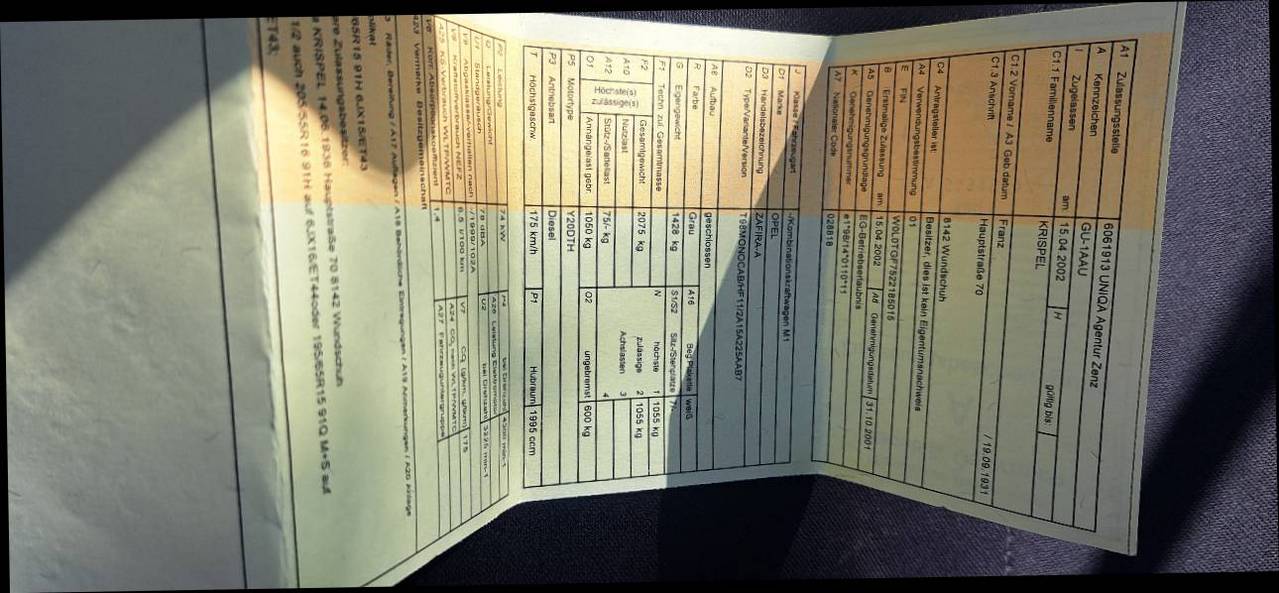 A1 Zulassungsstelle 6061913 UNIQA Agentur Zenz
A Kennzeichen GU-1AAU
I Zugelassen am 15.04.2002 H gültig bis:
C1.1 Familienname KRISPEL
C1.2 Vorname / A3 Geb datum Franz / 19.09.1931
C1.3 Anschrift Hauptstraße 70
8142 Wundschuh
C4 Antragsteller ist Besitzer, dies ist kein Eigentumsnachweis
A4 Verwendungsbestimmung 01
E FIN W0L0TGF7522185015
B Erstmalige Zulassung am 15.04.2002 A6 Genehmigungsdatum 31.10.2001
A5 Genehmigungsgrundlage EG-Betriebserlaubnis
K Genehmigungsnummer e1*98/14*0110*11
A7 Nationaler Code 028818
J Klasse / Fahrzeugart -/Kombinationskraftwagen M1
D1 Marke OPEL
D3 Handelsbezeichnung ZAFIRA-A
D2 Type/Variante/Version T98MONOCAB/HF11/2A15A225AAB7
A8 Aufbau geschlossen
R Farbe Grau A16 Beg Plakette weiß
G Eigengewicht 1428 kg S1/S2 Sitz-/Stehplätze
F1 Techn zul. Gesamtmasse N höchste 1 1055 kg
F2 Höchste(s) zulässige(s) Gesamtgewicht 2075 kg zulässige 2 1055 kg
A10 Nutzlast Achslasten 3
A12 Stütz-/Sattellast 75/- kg 4
O1 Anhängelast gebr. 1050 kg O2 ungebremst 600 kg
P5 Motortype Y20DTH
P3 Antriebsart Diesel
T Höchstgeschw. 175 km/h P1 Hubraum 1995 ccm
P2 Leistung 74 kW P4 bei Drehzahl 4300 min-1
Q Leistung/Gewicht A26 Leistung Elektromotor
U1 Standgeräusch 78 dBA U2 bei Drehzahl 3225 min-1
V9 Abgasklasse/-verhalten nach -/1999/102A
V8 Kraftstoffverbrauch NEFZ 6,5 l/100 km V7 CO2 (g/km, g/kWh) 175
A25 KS-Verbrauch WLTP/WMTC A24 CO2 nach WLTP/WMTC
V6 Korr. Absorptionskoeffizient 1,4 A27 Fahrzeuguntergruppe
A23 Vermerke Besitzgemeinschaft
Räder, Bereifung / A17 Auflagen / A18 Behördliche Eintragungen / A19 Anmerkungen / A20 Anlage
65R15 91H 6JX15/ET43
Zulassungsbesitzer:
KRISPEL 14.06.1936 Hauptstraße 70 8142 Wundschuh
1/2 auch 205/55R16 91H auf 6JX16/ET44oder 195/65R15 91Q M+S auf
ET43;